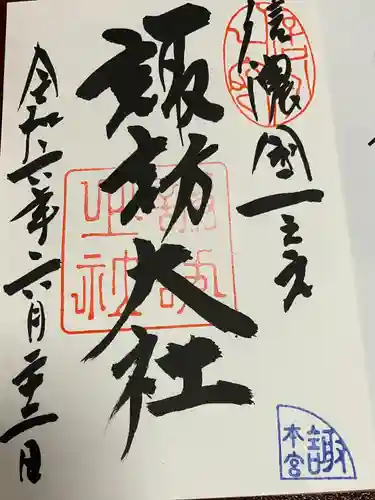 信濃國一之宮
諏訪大社
令和六年六月二十二日
諏訪
之社
諏
本宮